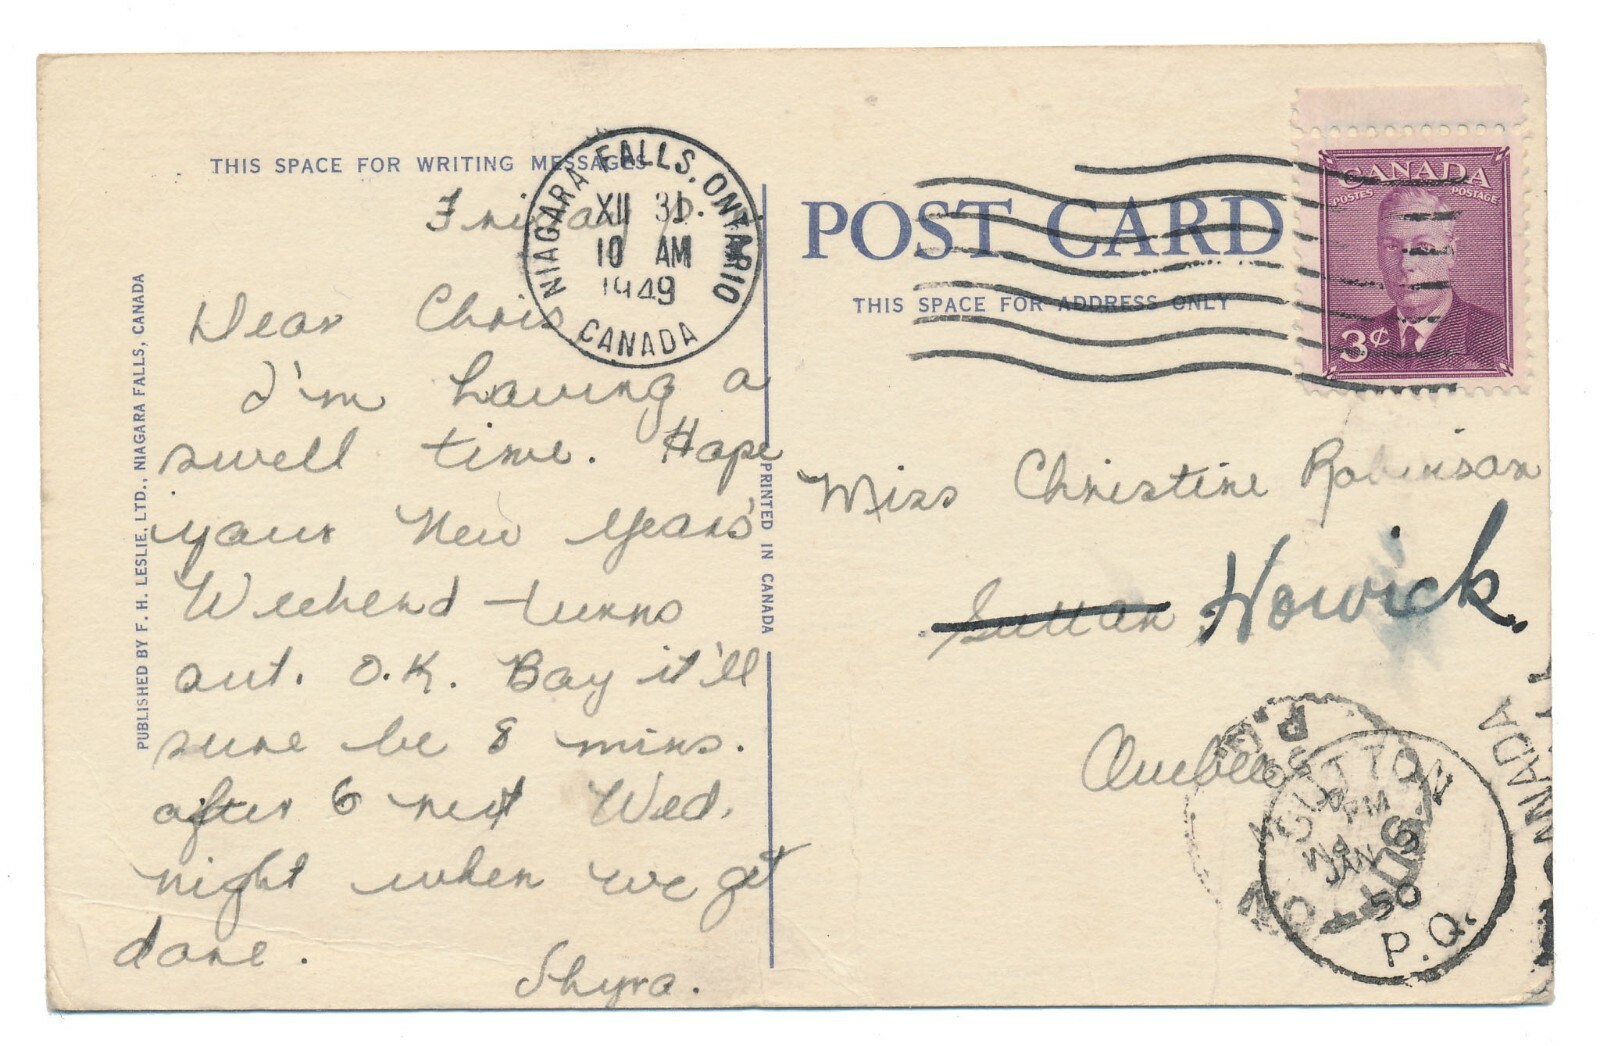 THIS SPACE FOR WRITING MESSAGES
Friday
Dear Chris
I'm having a
swell time. Hope
your New Years'
Weekend turns
out. O.K. Boy it'll
sure be 8 mins.
after 6 next Wed.
night when we get
done.
Shyra.
PUBLISHED BY F. H. LESLIE, LTD., NIAGARA FALLS, CANADA
PRINTED IN CANADA
NIAGARA FALLS, ONTARIO
XII 31
10 AM
1949
CANADA
POST CARD
THIS SPACE FOR ADDRESS ONLY
CANADA
POSTES POSTAGE
3¢
Miss Christine Robinson
Sutton Howick.
Quebec
SUTTON
PM
JAN
50
P.Q.
CANADA